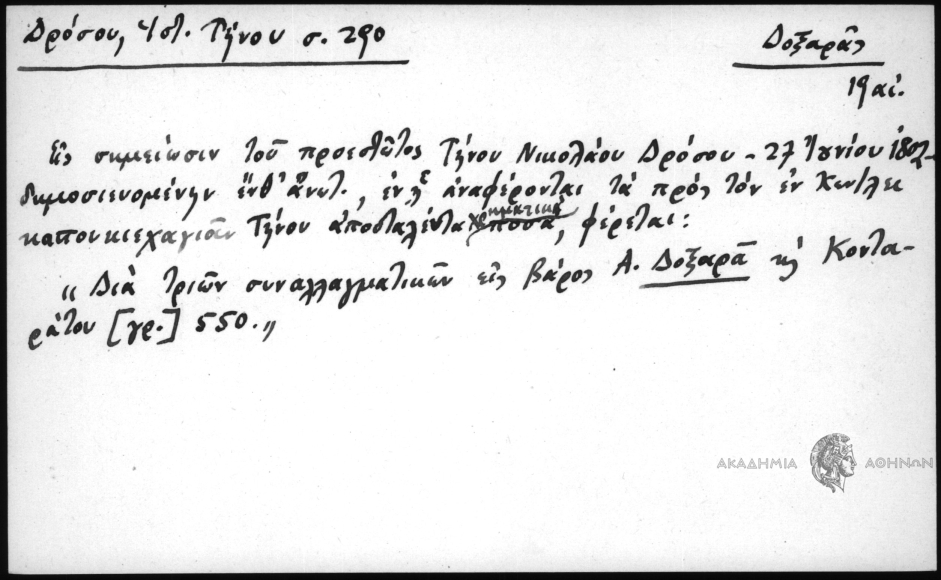 Δρόσου, Ἱστ. Τήνου σ. 290
Δοξαρᾶς
19 αἰ.
Εἰς σημείωσιν τοῦ προεστῶτος Τήνου Νικολάου Δρόσου - 27 Ἰουνίου 1802-
δημοσιευομένην ἔνθ' ἄνωτ., ἐν ᾗ ἀναφέρονται τὰ πρὸς τὸν ἐν Κων/λει
καπουκιεχαγιᾶν Τήνου ἀποσταλέντα χρηματικὰ ποσά, φέρεται:
„ Διὰ τριῶν συναλλαγματικῶν εἰς βάρος Α. Δοξαρᾶ κὶ Κοντα-
ράτου [γρ.] 550.„
ΑΚΑΔΗΜΙΑ ΑΘΗΝΩΝ